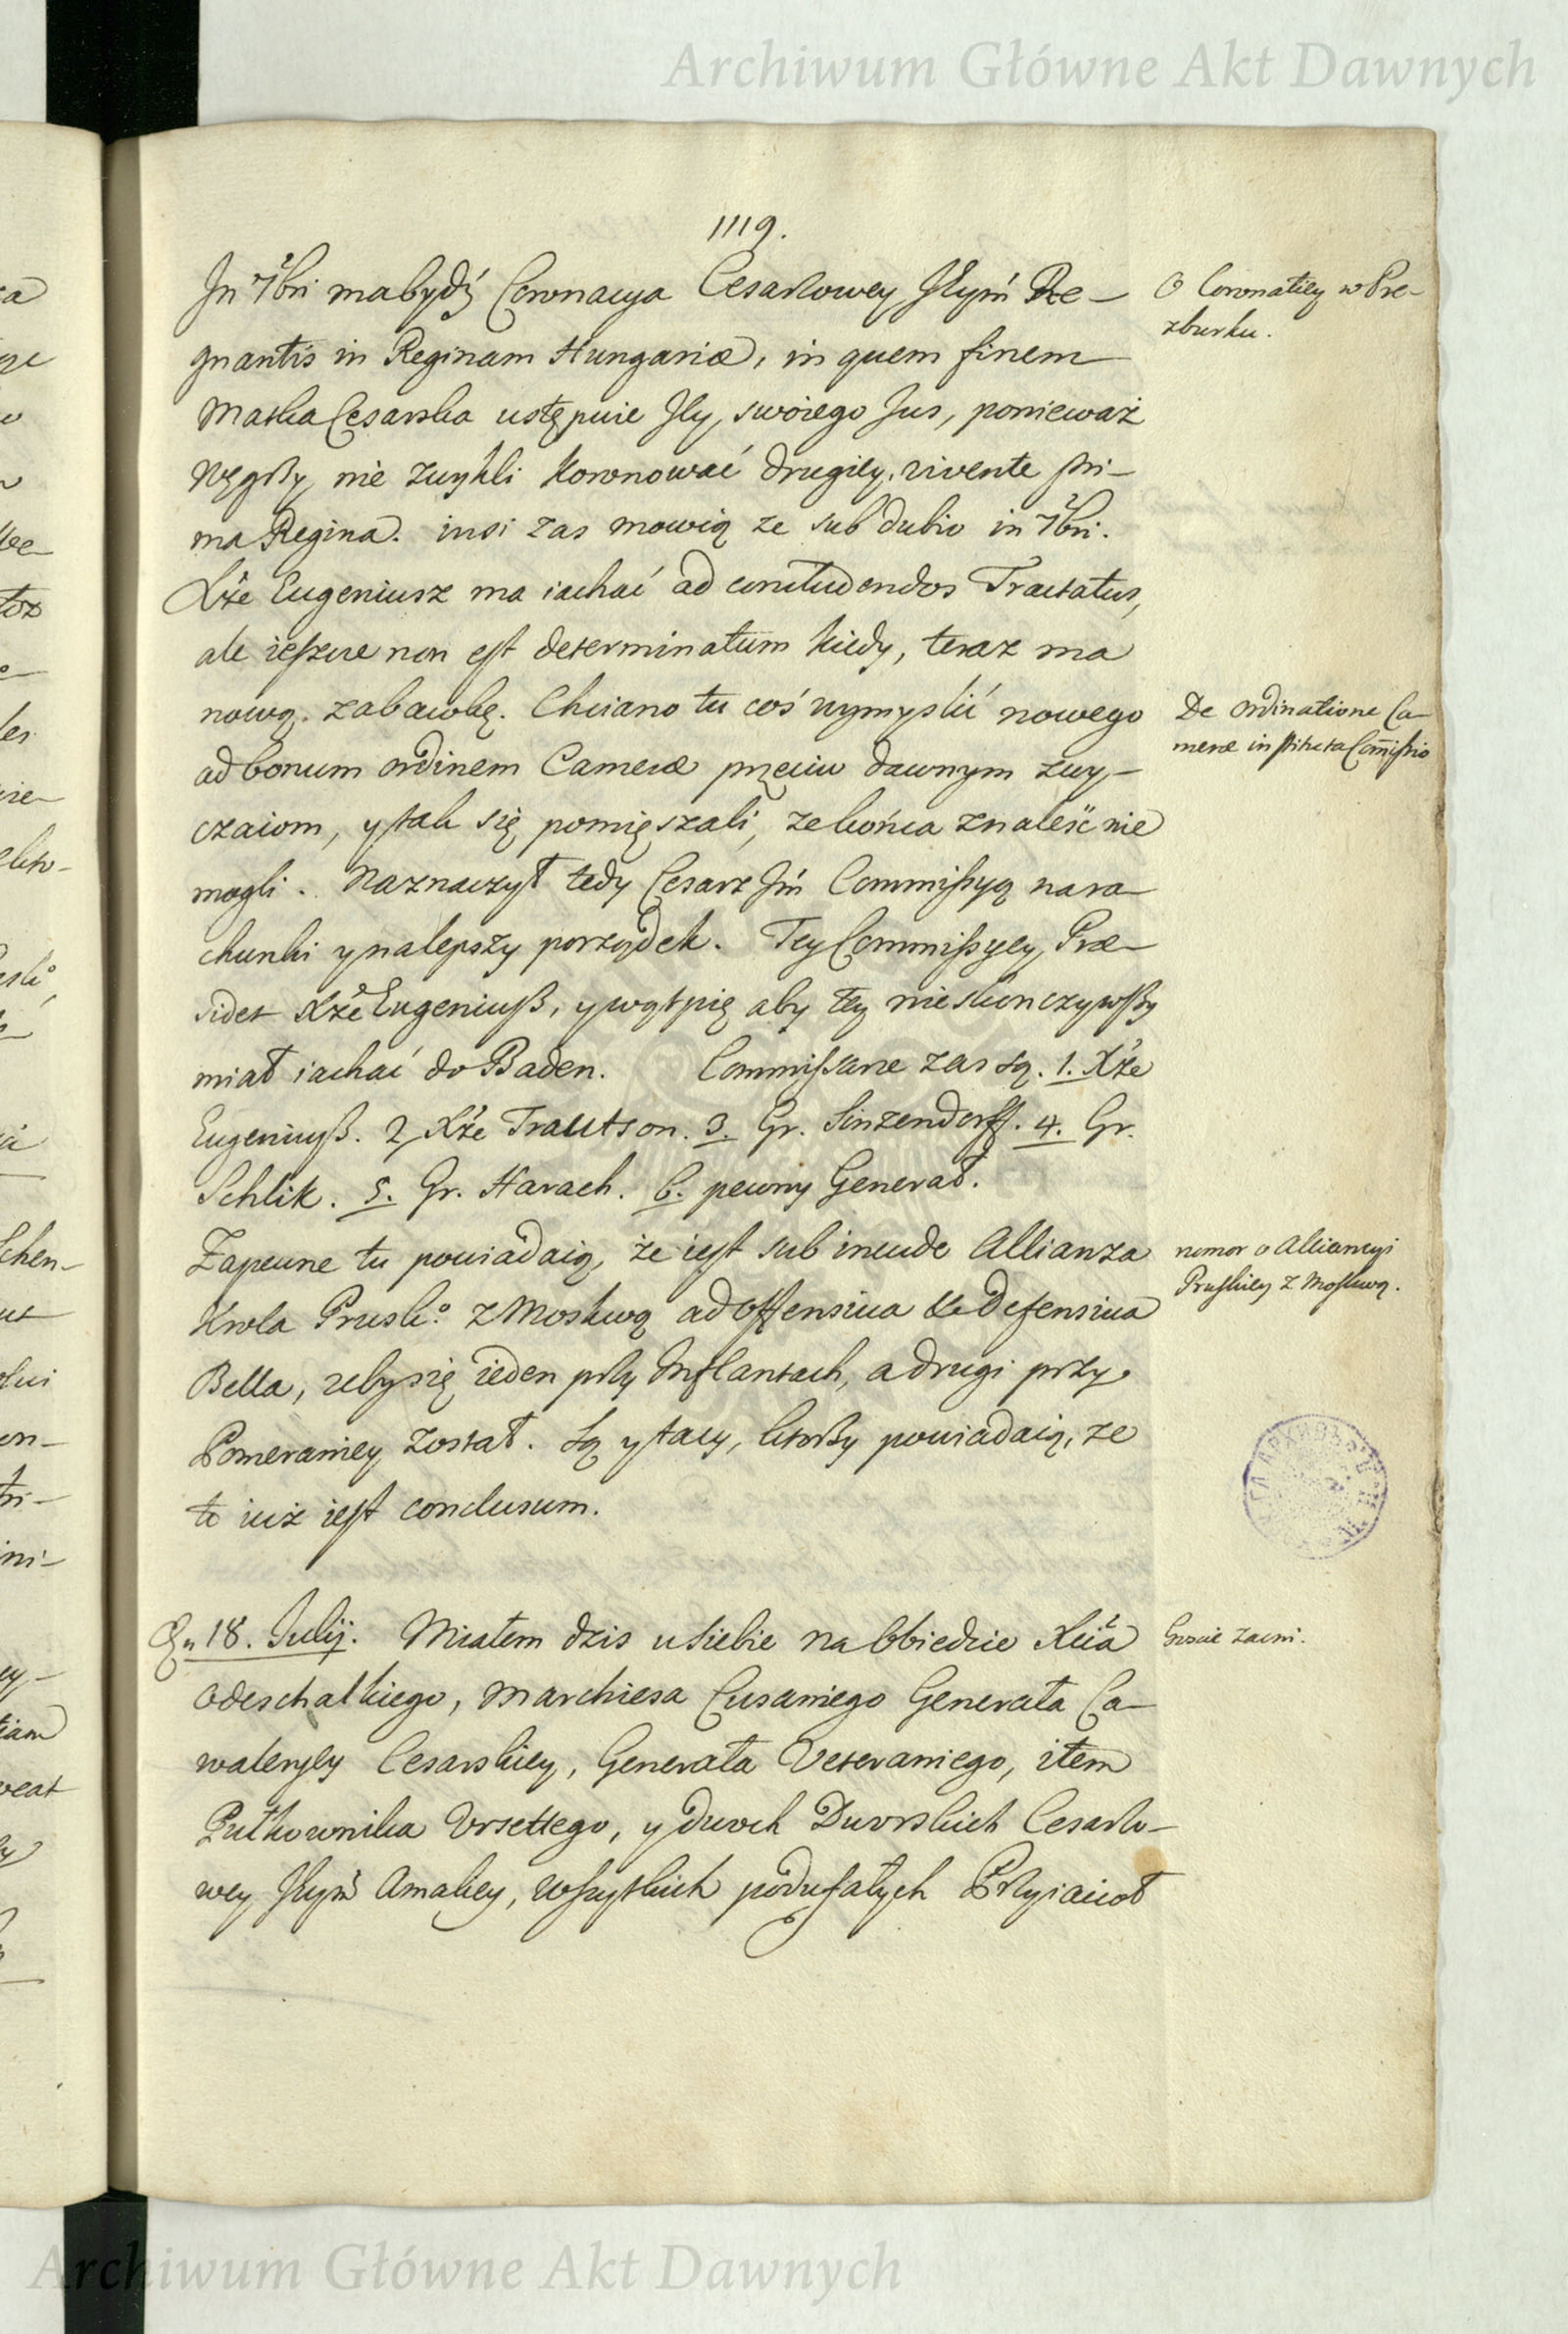 Archiwum Główne Akt Dawnych
1119.
In 7bri ma bydź Coronacya Cesarzowey JEym̃ Re-
gnantis in Reginam Hungariæ, in quem finem
Matka Cesarska ustępuie JEy swoiego Jus, ponieważ
Węgrzy nie zwykli koronować drugiey, vivente pri-
ma Regina. insi zas mowią ze sub dubio in 7bri.
Xże Eugeniusz ma iachać ad concludendos Tractatus,
ale ieszcze non est determinatum kiedy, teraz ma
nową zabawkę. Chciano tu coś wymyslić nowego
ad bonum ordinem Cameræ przeciw dawnym zwy-
czaiom, y tak się pomięszali, ze końca znaleść nie
mogli. Naznaczył tedy Cesarz Jm̃ Commissyą na ra-
chunki y nalepszy porządek. Tey Commissyey Præ-
sidet Xże Eugeniusz, y wątpię aby tey nieskonczywszy
miał iachać do Baden. Commissarze zas są. 1. Xże
Eugeniusz. 2. Xże Trautson. 3. Gr. Sinzendorff. 4. Gr.
Schlik. 5. Gr. Harach. 6. pewny Generał.
Zapewne tu powiadaią, że iest sub incude Allianza
Krola Prusko. z Moskwą ad offensiua & defensiua
Bella, zeby się ieden przy Inflantach, a drugi przy
Pomeraniey został. Są y tacy, ktorzy powiadaią, ze
to iuż iest conclusum.
Dn 18. Julij. Miałem dzis u siebie na obiedzie Xcia
Odeschalkiego, Marchiesa Cusaniego Generała Ca-
waleryey Cesarskiey, Generała Veteraniego, item
Pułkownika Vrsettego, y dwoch Dworskich Cesarzo-
wey JEym̃ Amaliey, wszystkich podufałych Przyiacioł
O Coronatiey w Pre-
zburku.
De ordinatione Ca-
meræ instituta Com̃issio
rumor o Alliancyi
Pruskiey z Moskwą.
Goscie zacni.
Archiwum Główne Akt Dawnych